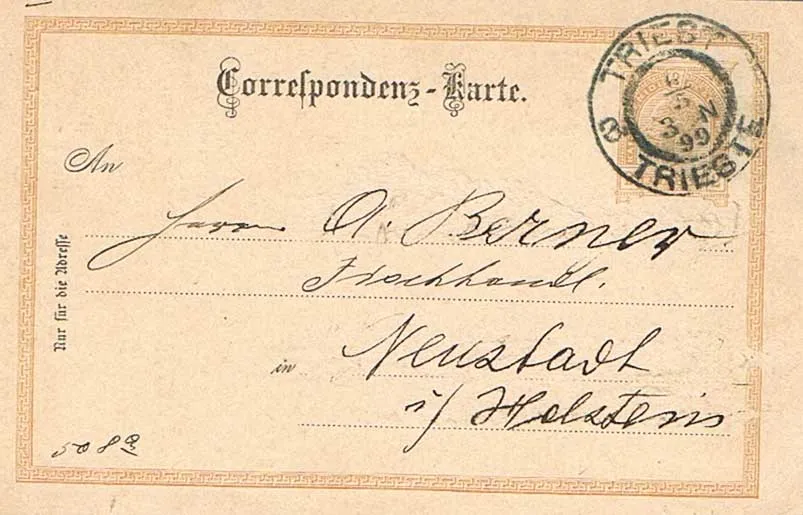 Correspondenz-Karte.
TRIEST
99
TRIESTE
An
Herrn A. Berner
Fischhandl.
in Neustadt
i/ Holstein
Nur für die Adresse
508a